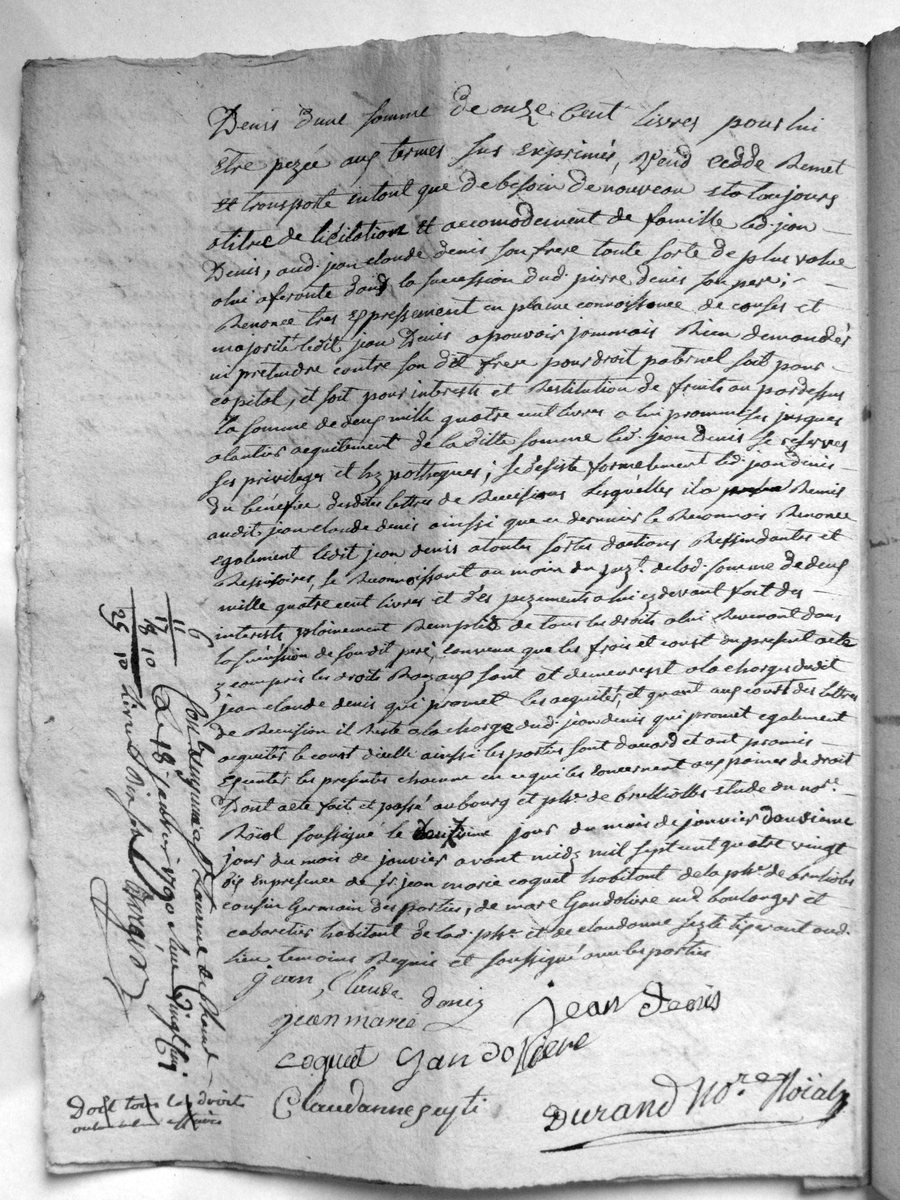 Denis d'une somme de onze Cent livres pour lui
etre pezée aux termes sus exprimés, vend cedde Remet
et transporte entant que de besoin de nouveau et a toujours
atitre de licitation et accomodement de famille led. jean
Denis, aud. jean claude denis son frere toute sorte de plus value
alui aferente dans la sucession dud. pierre denis son pere;
Renonce tres expressement en plaine connoissance de causes et
majorité ledit jean Denis apouvoir jammais Rien demander
ni pretendre contre son dit frere pour droit paternel soit pour
capital, et soit pour interests et Restitution de fruits au pardessus
la somme de deux mille quatre cent livres a lui promentses jusques
alantier acquitement de la ditte somme led. jean denis se reserves
ses privileges et hypotheques; se desiste formelement led. jean denis
du bénéfice desdites lettres de Recisions lesquelles il a Remis
audit jean claude denis ainssi que ce dernier le Reconnois Renonce
egalement ledit jean denis atoutes sortes dactions Ressindantes et
Ressisoires, se Reconnoissant au moien du pazt. de lad. somme de deux
mille quatre cent livres et des pezements a lui cy devant fait des
interests plainement Remplit de tous les droits a lui Revenant dans
la sucession de soudit peré, convenu que les frais et coust du present acte
y compris les droits Royaux sont et demeurest a la charge dudit
jean claude denis qui promet les acquités, et quant aux coust des lettres
de Recision il Reste a la charge dud. jean denis qui promet egalement
acquités le coust d'icelle ainssi les parties sont d'acord et ont promis
exécuter les presentes chacune en ce qui les concernent aux paines de droit
Dont acte fait et passé au bourg et pse. de brullioles etude du nore.
Roial soussigné le jour du mois de janvier douzieme
jour du mois de janvier avant midy mil sept cent quatre vingt
dix en presence de sr. jean marie coquet habitant de la pse. de brullioles
cousin germain des parties, de marc Gandoliere md. boulanger et
cabaretier habitant de lad. pse. et de claudanne seyti tisserant aud.
lieu temoins Requis et soussigné avec les parties
jean Claude denis
jean marie jean denis
coquet Gandoliere
Claudanne seyti
Durand Nore. Roial
11 6
17 10
25 10
St Laurent de Chamd.
Le 18 janvier 1790
vingt cinq
livres dix sols
Dont tous les droits